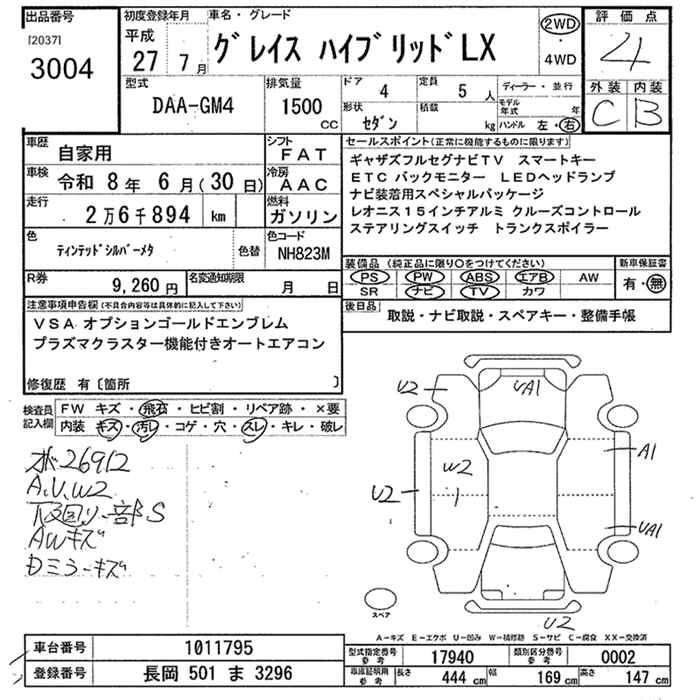 出品番号 初度登録年月 車名・グレード 評価点
[2037] 平成
3004 27年7月 グレイス ハイブリッドLX 2WD・4WD 4
型式 排気量 ドア 4 定員 5人 ディーラー・並行 外装 内装
DAA-GM4 1500cc 形状 セダン 積載 kg モデル年式 年 C B
ハンドル 左・右
車歴 自家用 シフト FAT セールスポイント(正常に機能するものに限ります)
車検 令和 8年 6月(30日) 冷房 AAC ギャザズフルセグナビTV スマートキー
ETC バックモニター LEDヘッドランプ
走行 2万6千894 km 燃料 ガソリン ナビ装着用スペシャルパッケージ
レオニス15インチアルミ クルーズコントロール
色 ティンテッドシルバーメタ 色替 色コード NH823M ステアリングスイッチ トランクスポイラー
装備品(純正品に限り○をつけてください) 新車保証書
R券 9,260円 名変通知期限 月 日 PS PW ABS エアB AW 有・無
SR ナビ TV カワ
注意事項申告欄(不具合内容等は具体的に記入して下さい) 後日品 取説・ナビ取説・スペアキー・整備手帳
VSA オプションゴールドエンブレム
プラズマクラスター機能付きオートエアコン
修復歴 有〔箇所 〕
検査員記入欄 FW キズ・飛石・ヒビ割・リペア跡・×要
内装 キズ・汚レ・コゲ・穴・スレ・キレ・破レ
26912
A.U.W2
下回り一部S
AWキズ
Dミラーキズ
U2 UA1
A1
W2
U2 1
UA1
スペア U2
A-キズ E-エクボ U-凹み W-補修跡 S-サビ C-腐食 XX-交換済
車台番号 1011795 型式指定番号 参考 17940 類別区分番号 参考 0002
登録番号 長岡 501 ま 3296 車庫証明用 参考 長さ 444 cm 幅 169 cm 高さ 147 cm